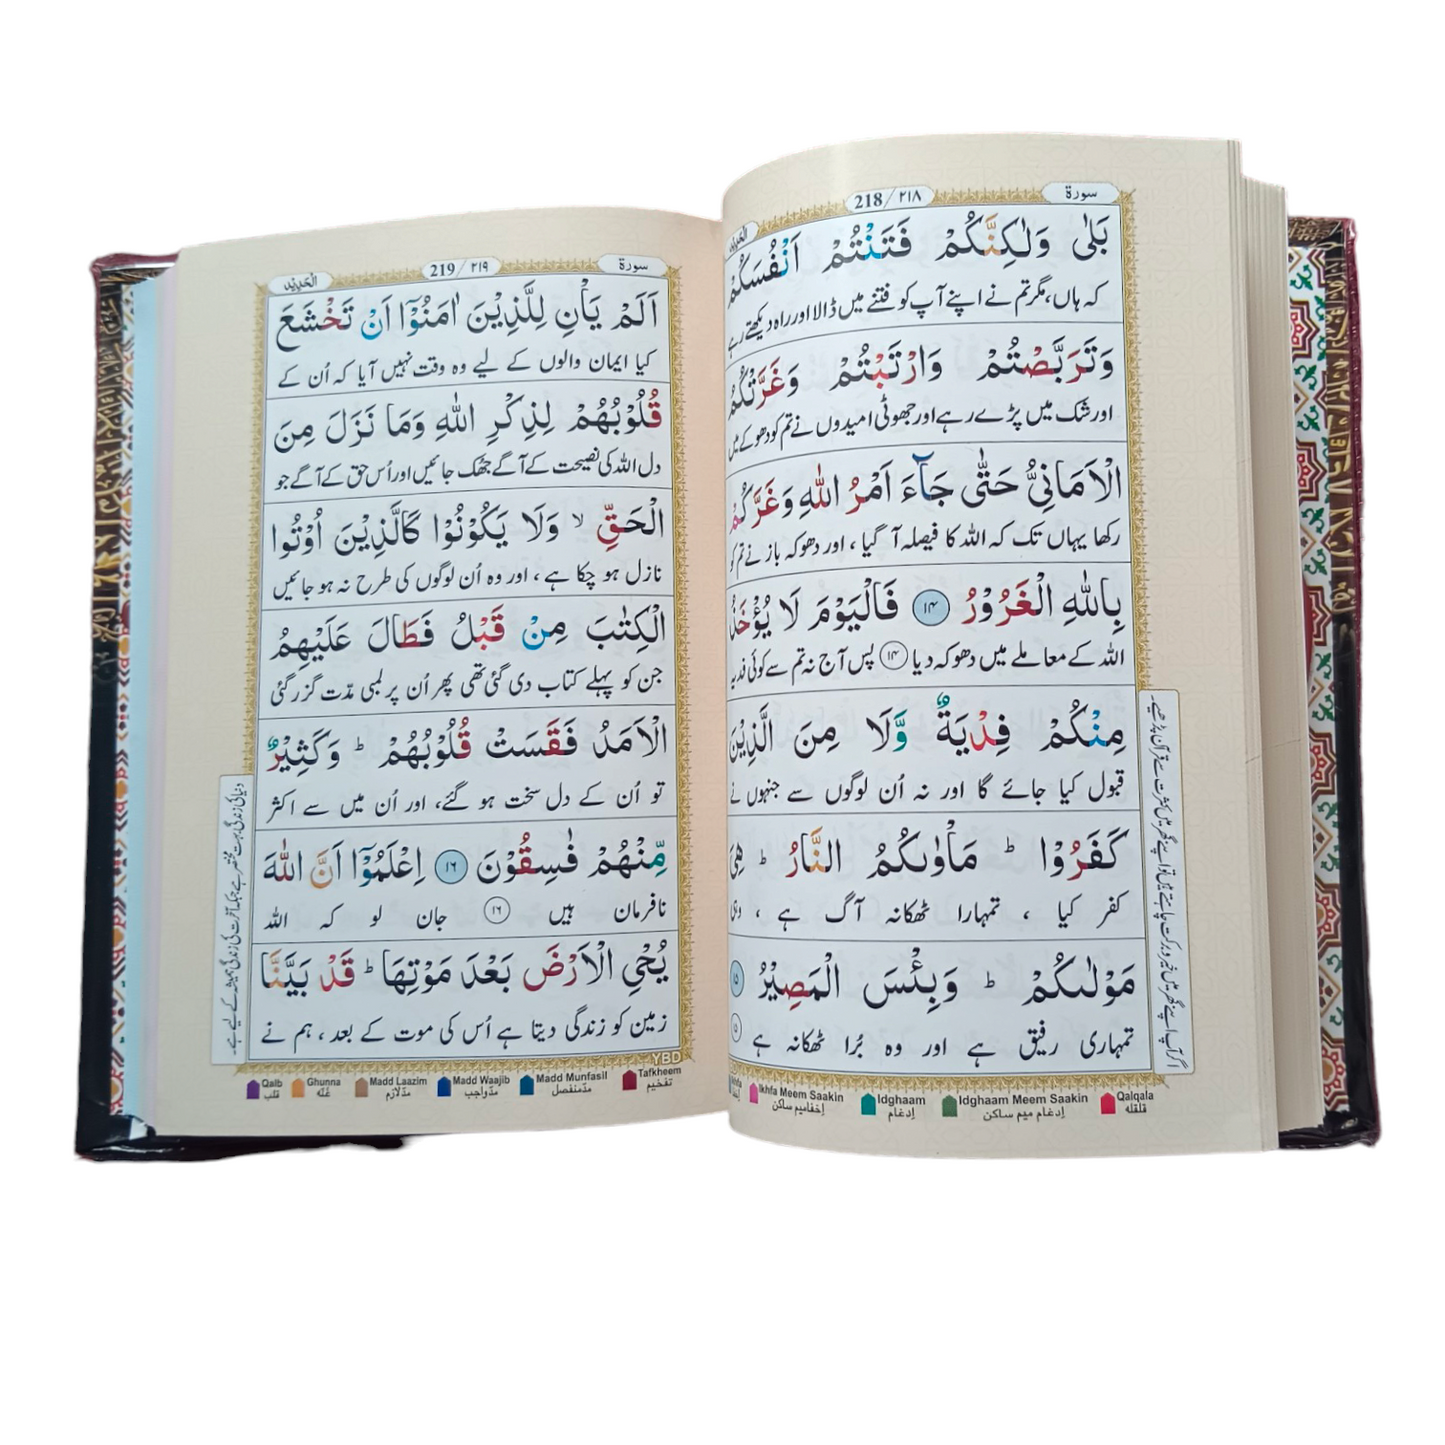 سورة
218 / ٢١٨
بَلٰى وَلٰكِنَّكُمْ فَتَنْتُمْ اَنْفُسَكُمْ
کہ ہاں، مگر تم نے اپنے آپ کو فتنے میں ڈالا اور راہ دیکھتے رہے
وَتَرَبَّصْتُمْ وَارْتَبْتُمْ وَغَرَّتْكُمُ
اور شک میں پڑے رہے اور جھوٹی امیدوں نے تم کو دھوکے میں
الْاَمَانِيُّ حَتّٰى جَآءَ اَمْرُ اللّٰهِ وَغَرَّكُمْ
رکھا یہاں تک کہ اللہ کا فیصلہ آ گیا ، اور دھوکہ باز نے تم کو
بِاللّٰهِ الْغَرُوْرُ ١٤ فَالْيَوْمَ لَا يُؤْخَذُ
اللہ کے معاملے میں دھوکہ دیا ١٤ پس آج نہ تم سے کوئی فدیہ
مِنْكُمْ فِدْيَةٌ وَّلَا مِنَ الَّذِيْنَ
قبول کیا جائے گا اور نہ اُن لوگوں سے جنہوں نے
كَفَرُوْا ؕ مَاْوٰىكُمُ النَّارُ ؕ هِيَ
کفر کیا ، تمہارا ٹھکانہ آگ ہے ، وہی
مَوْلٰىكُمْ ؕ وَبِئْسَ الْمَصِيْرُ ١٥
تمہاری رفیق ہے اور وہ بُرا ٹھکانہ ہے ١٥
اگر آپ اپنے گھر میں خیر و برکت چاہتے ہیں تو اپنے گھر میں کثرت سے قرآن پڑھیے۔
Ikhfa Meem Saakin Idghaam Idghaam Meem Saakin Qalqala
إخفا میم ساکن إدغام إدغام میم ساکن قلقله
سورة
219 / ٢١٩
الْحَدِيْد
اَلَمْ يَاْنِ لِلَّذِيْنَ اٰمَنُوْۤا اَنْ تَخْشَعَ
کیا ایمان والوں کے لیے وہ وقت نہیں آیا کہ اُن کے
قُلُوْبُهُمْ لِذِكْرِ اللّٰهِ وَمَا نَزَلَ مِنَ
دل اللہ کی نصیحت کے آگے جھک جائیں اور اُس حق کے آگے جو
الْحَقِّ ۙ وَلَا يَكُوْنُوْا كَالَّذِيْنَ اُوْتُوا
نازل ہو چکا ہے ، اور وہ اُن لوگوں کی طرح نہ ہو جائیں
الْكِتٰبَ مِنْ قَبْلُ فَطَالَ عَلَيْهِمُ
جن کو پہلے کتاب دی گئی تھی پھر اُن پر لمبی مدّت گزر گئی
الْاَمَدُ فَقَسَتْ قُلُوْبُهُمْ ؕ وَكَثِيْرٌ
تو اُن کے دل سخت ہو گئے، اور اُن میں سے اکثر
مِّنْهُمْ فٰسِقُوْنَ ١٦ اِعْلَمُوْۤا اَنَّ اللّٰهَ
نافرمان ہیں ١٦ جان لو کہ اللہ
يُحْيِ الْاَرْضَ بَعْدَ مَوْتِهَا ؕ قَدْ بَيَّنَّا
زمین کو زندگی دیتا ہے اُس کی موت کے بعد ، ہم نے
دنیا کی زندگی بہت مختصر ہے جبکہ آخرت کی زندگی ہمیشہ کے لیے ہے۔
YBD
Qalb Ghunna Madd Laazim Madd Waajib Madd Munfasil Tafkheem
قلب غنّه مدّلازم مدّواجب مدّمنفصل تفخيم